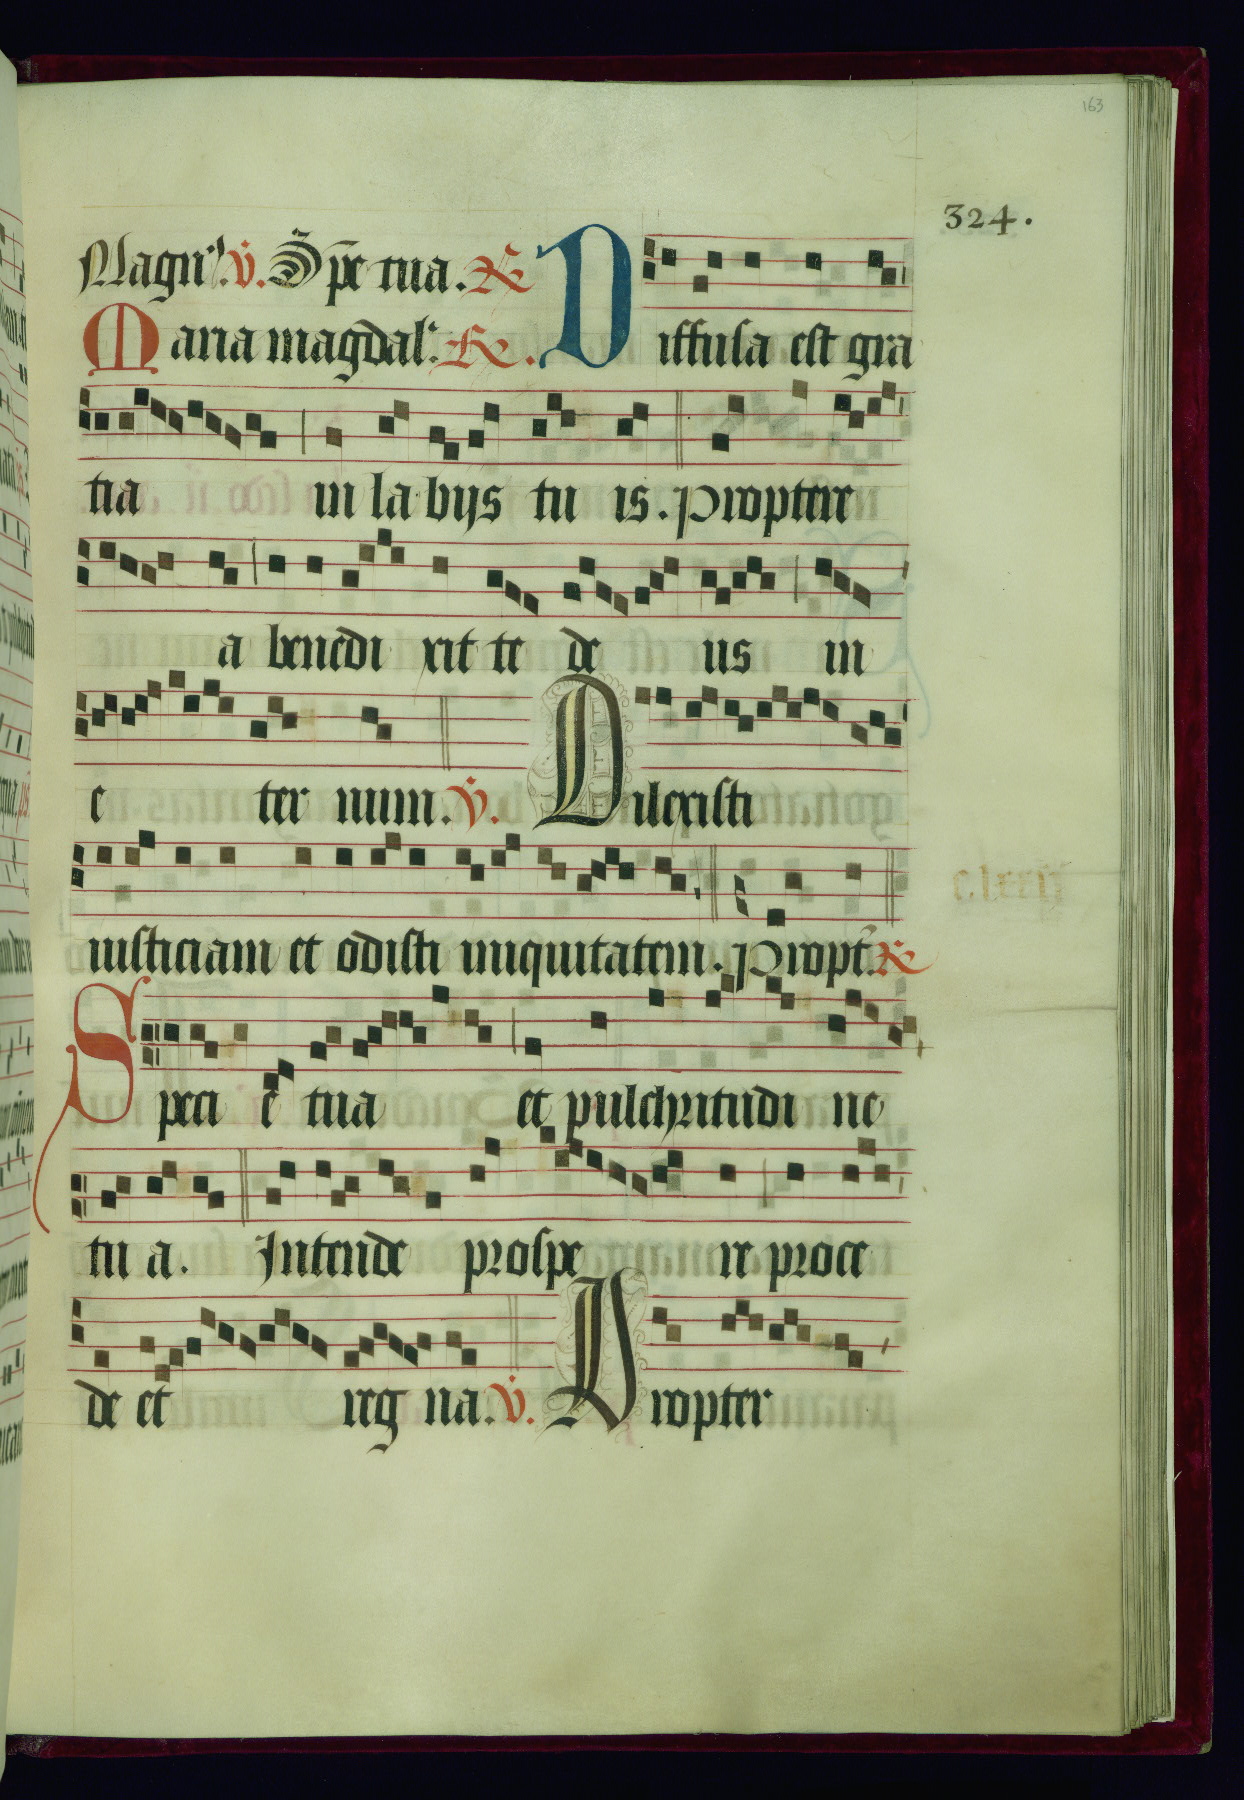 163
324.
Magn̄. V. Spe tua. R
Maria magdal. R. Diffusa est gra
tia in la bijs tu is. propterе
a benedi xit te de us in
e ter num. V. Dilexisti
iusticiam et odisti iniquitatem. Propt. R
Speci e tua et pulchritudi ne
tu a. Intende prospe re proce
de et reg na. V. Propter